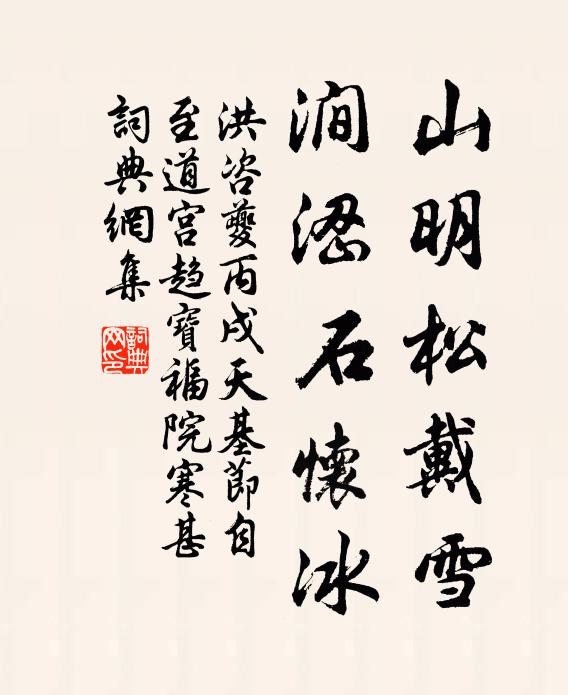 山明松戴雪
澗涩石懷冰
洪咨夔丙戌天基節自
至道宮趋寶福院寒甚
詞典網集
詞典
网印